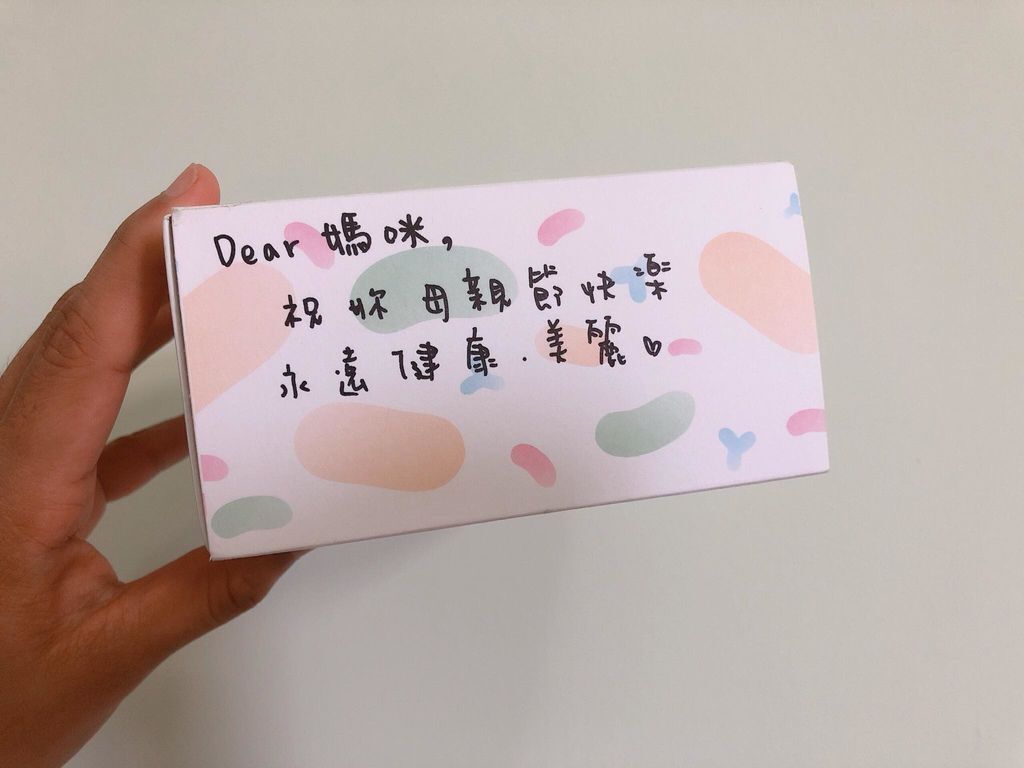 Dear 媽咪,
祝妳母親節快樂
永遠健康.美麗♡